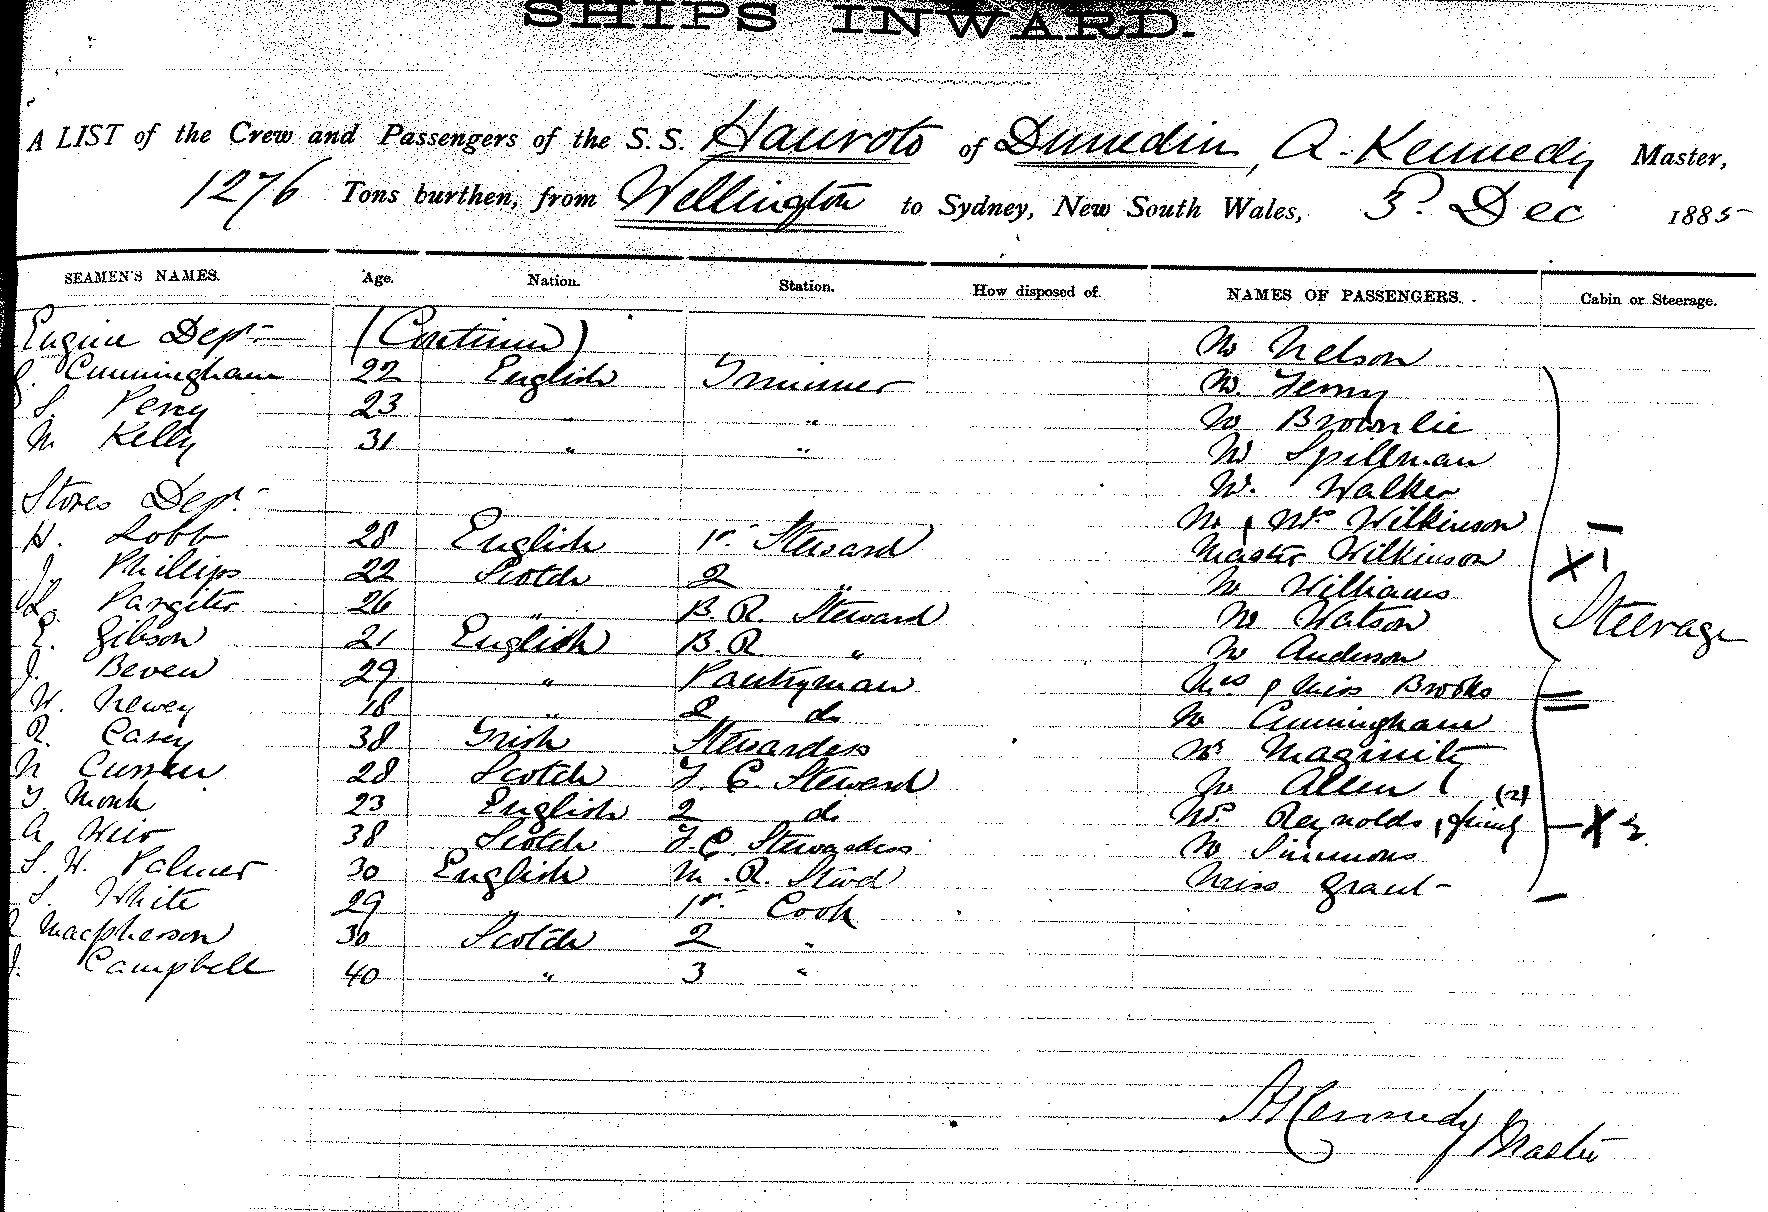 SHIPS INWARD.
A LIST of the Crew and Passengers of the S.S. Hauroto of Dunedin, A. Kennedy Master,
1276 Tons burthen, from Wellington to Sydney, New South Wales, 3 Dec 1885
SEAMEN'S NAMES. Age. Nation. Station. How disposed of. NAMES OF PASSENGERS. Cabin or Steerage.
Engine Dept (Continued) Mr Nelson
Cunningham 22 English Trimmer Mr
S. Percy 23 " " Mr Brownlie
M Kelly 31 " " Mr Spillman
Mr Walker
Stores Dept Mr & Mrs Wilkinson
H. Lobb 28 English 1st Steward Master Wilkinson X 1
J. Phillips 22 Scotch 2 " Mr Williams
Pargiter 26 " B. R. Steward Mr Watson Steerage
E. Gibson 21 English B. R " Mr Anderson
J. Beven 29 " Pantryman Mrs & Miss Brooks
W. Newey 18 " 2 do Mr Cunningham
R. Casey 38 Irish Stewardess Mr
M Curren 28 Scotch F. C. Steward Mr Allen
T Monk 23 English 2 do Mrs Reynolds & family (2) X 2
A Weir 38 Scotch F. C. Stewardess Mr Simmons
S. H. Palmer 30 English M. R. Stwd Miss Grant
S. White 29 1st Cook
Macpherson 30 Scotch 2 "
J. Campbell 40 " 3 "
A Kennedy Master